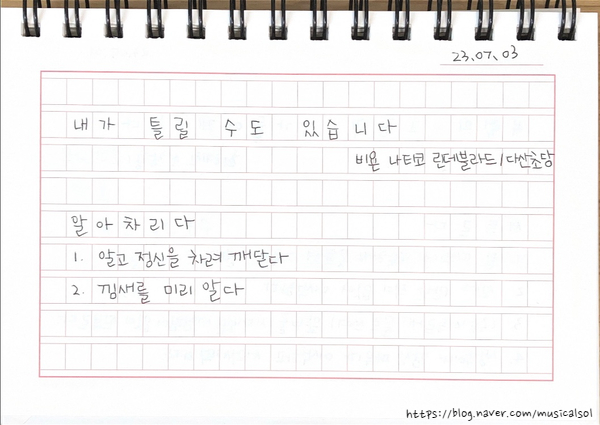 23.07.03
내가 틀릴 수도 있습니다
비욘 나티코 린데블라드/다산초당
알아차리다
1. 알고 정신을 차려 깨닫다
2. 낌새를 미리 알다
https://blog.naver.com/musicalsol